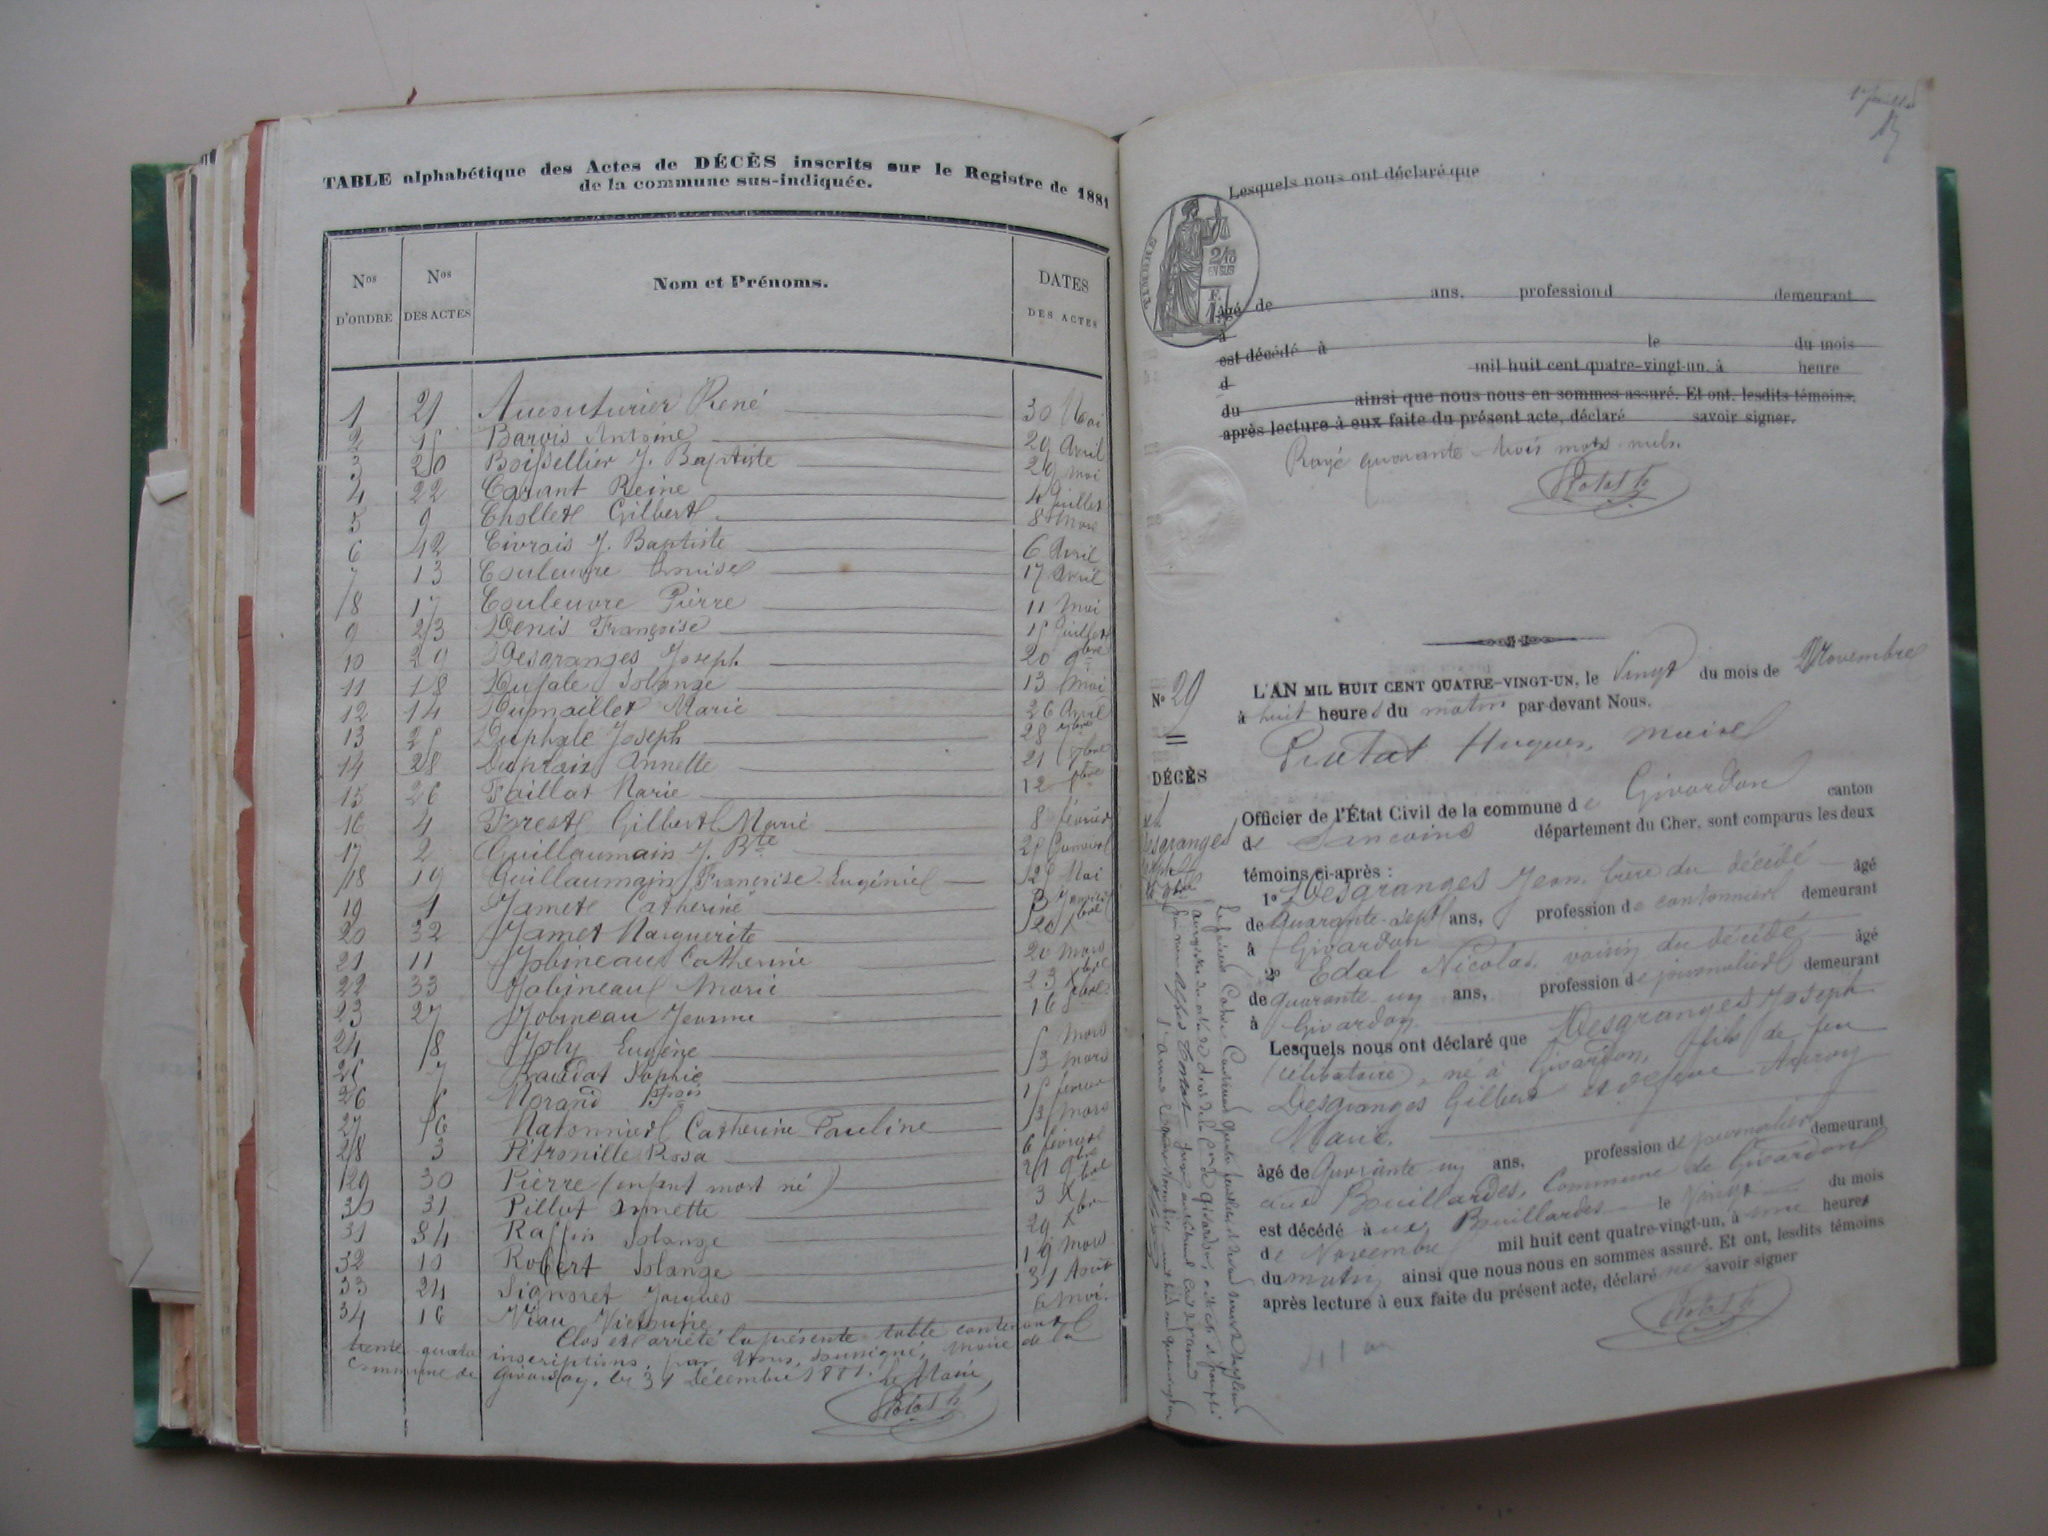 TABLE alphabétique des Actes de DÉCÈS inscrits sur le Registre de 1881
de la commune sus-indiquée.
Nos D'ORDRE Nos DES ACTES Nom et Prénoms. DATES DES ACTES
1 21 René 30 Mai
2 15 Barois Antoine 29 Avril
3 20 Boissellier J. Baptiste 29 Mai
4 22 Reine 4 Juillet
5 9 Chollet Gilbert 8 Mars
6 12 Civrais J. Baptiste 6 Avril
7 13 Couleuvre Louise 17 Avril
8 17 Couleuvre Pierre 11 Mai
9 23 Denis Françoise 15 Juillet
10 29 Desgranges Joseph 20 9bre
11 18 Solange 13 Mai
12 14 Dumaillet Marie 26 Avril
13 25 Duphale Joseph 28 7bre
14 28 Annette 21
15 26 Faillat Marie 12
16 4 Forest Gilbert Marie 8 février
17 2 Guillaumain J. Bte
18 19 Guillaumain Françoise Eugénie 25 Mai
19 1 Jamet Catherine 3 Janvier
20 32 Jamet Marguerite 20 Xbre
21 11 Jobineau Catherine 20 Mars
22 33 Jobineau Marie 23 Xbre
23 27 Jobineau Jeanne 16
24 8 Joly Eugène 5 Mars
25 7 Sophie 3 Mars
26 6 Morand 15 février
27 Catherine Pauline Mars
28 3 Pétronille Rosa 6 février
29 30 Pierre (enfant mort né) 21 9bre
30 31 Pillot Annette 3 Xbre
31 34 Raffin Solange 29 Xbre
32 10 Robert Solange 19 Mars
33 24 Signoret Jacques 31 Août
34 16 Viau 6 Mai.
Clos et arrêté la présente table contenant
trente quatre inscriptions, par Nous, soussigné, Maire de la
commune de Givardon, le 31 Décembre 1881. Le Maire,
Lesquels nous ont déclaré que
TIMBRE
2/10
EN SUS
âgé de ans, profession d demeurant
à
est décédé à le du mois
d mil huit cent quatre-vingt-un, à heure
du ainsi que nous nous en sommes assuré. Et ont, lesdits témoins,
après lecture à eux faite du présent acte, déclaré savoir signer.
Rayé quarante-trois mots nuls.
No 29
DÉCÈS
Desgranges
L'AN MIL HUIT CENT QUATRE-VINGT-UN, le Vingt du mois de Novembre
à huit heures du matin par-devant Nous.
Hugues, maire
Officier de l'État Civil de la commune de Givardon canton
de Sancoins département du Cher, sont comparus les deux
témoins ci-après :
1o Desgranges Jean, frère du décédé âgé
de quarante-sept ans, profession de cantonnier demeurant
à Givardon
2o Edal Nicolas, voisin du décédé âgé
de quarante un ans, profession de journalier demeurant
à Givardon
Lesquels nous ont déclaré que Desgranges Joseph
(célibataire), né à Givardon, fils de feu
Desgranges Gilbert et de feue
Marie,
âgé de Quarante un ans, profession de journalier demeurant
aux Bouillardes, Commune de Givardon
est décédé à aux Bouillardes le Vingt du mois
de Novembre mil huit cent quatre-vingt-un, à une heures
du matin ainsi que nous nous en sommes assuré. Et ont, lesdits témoins
après lecture à eux faite du présent acte, déclaré ne savoir signer
41 an